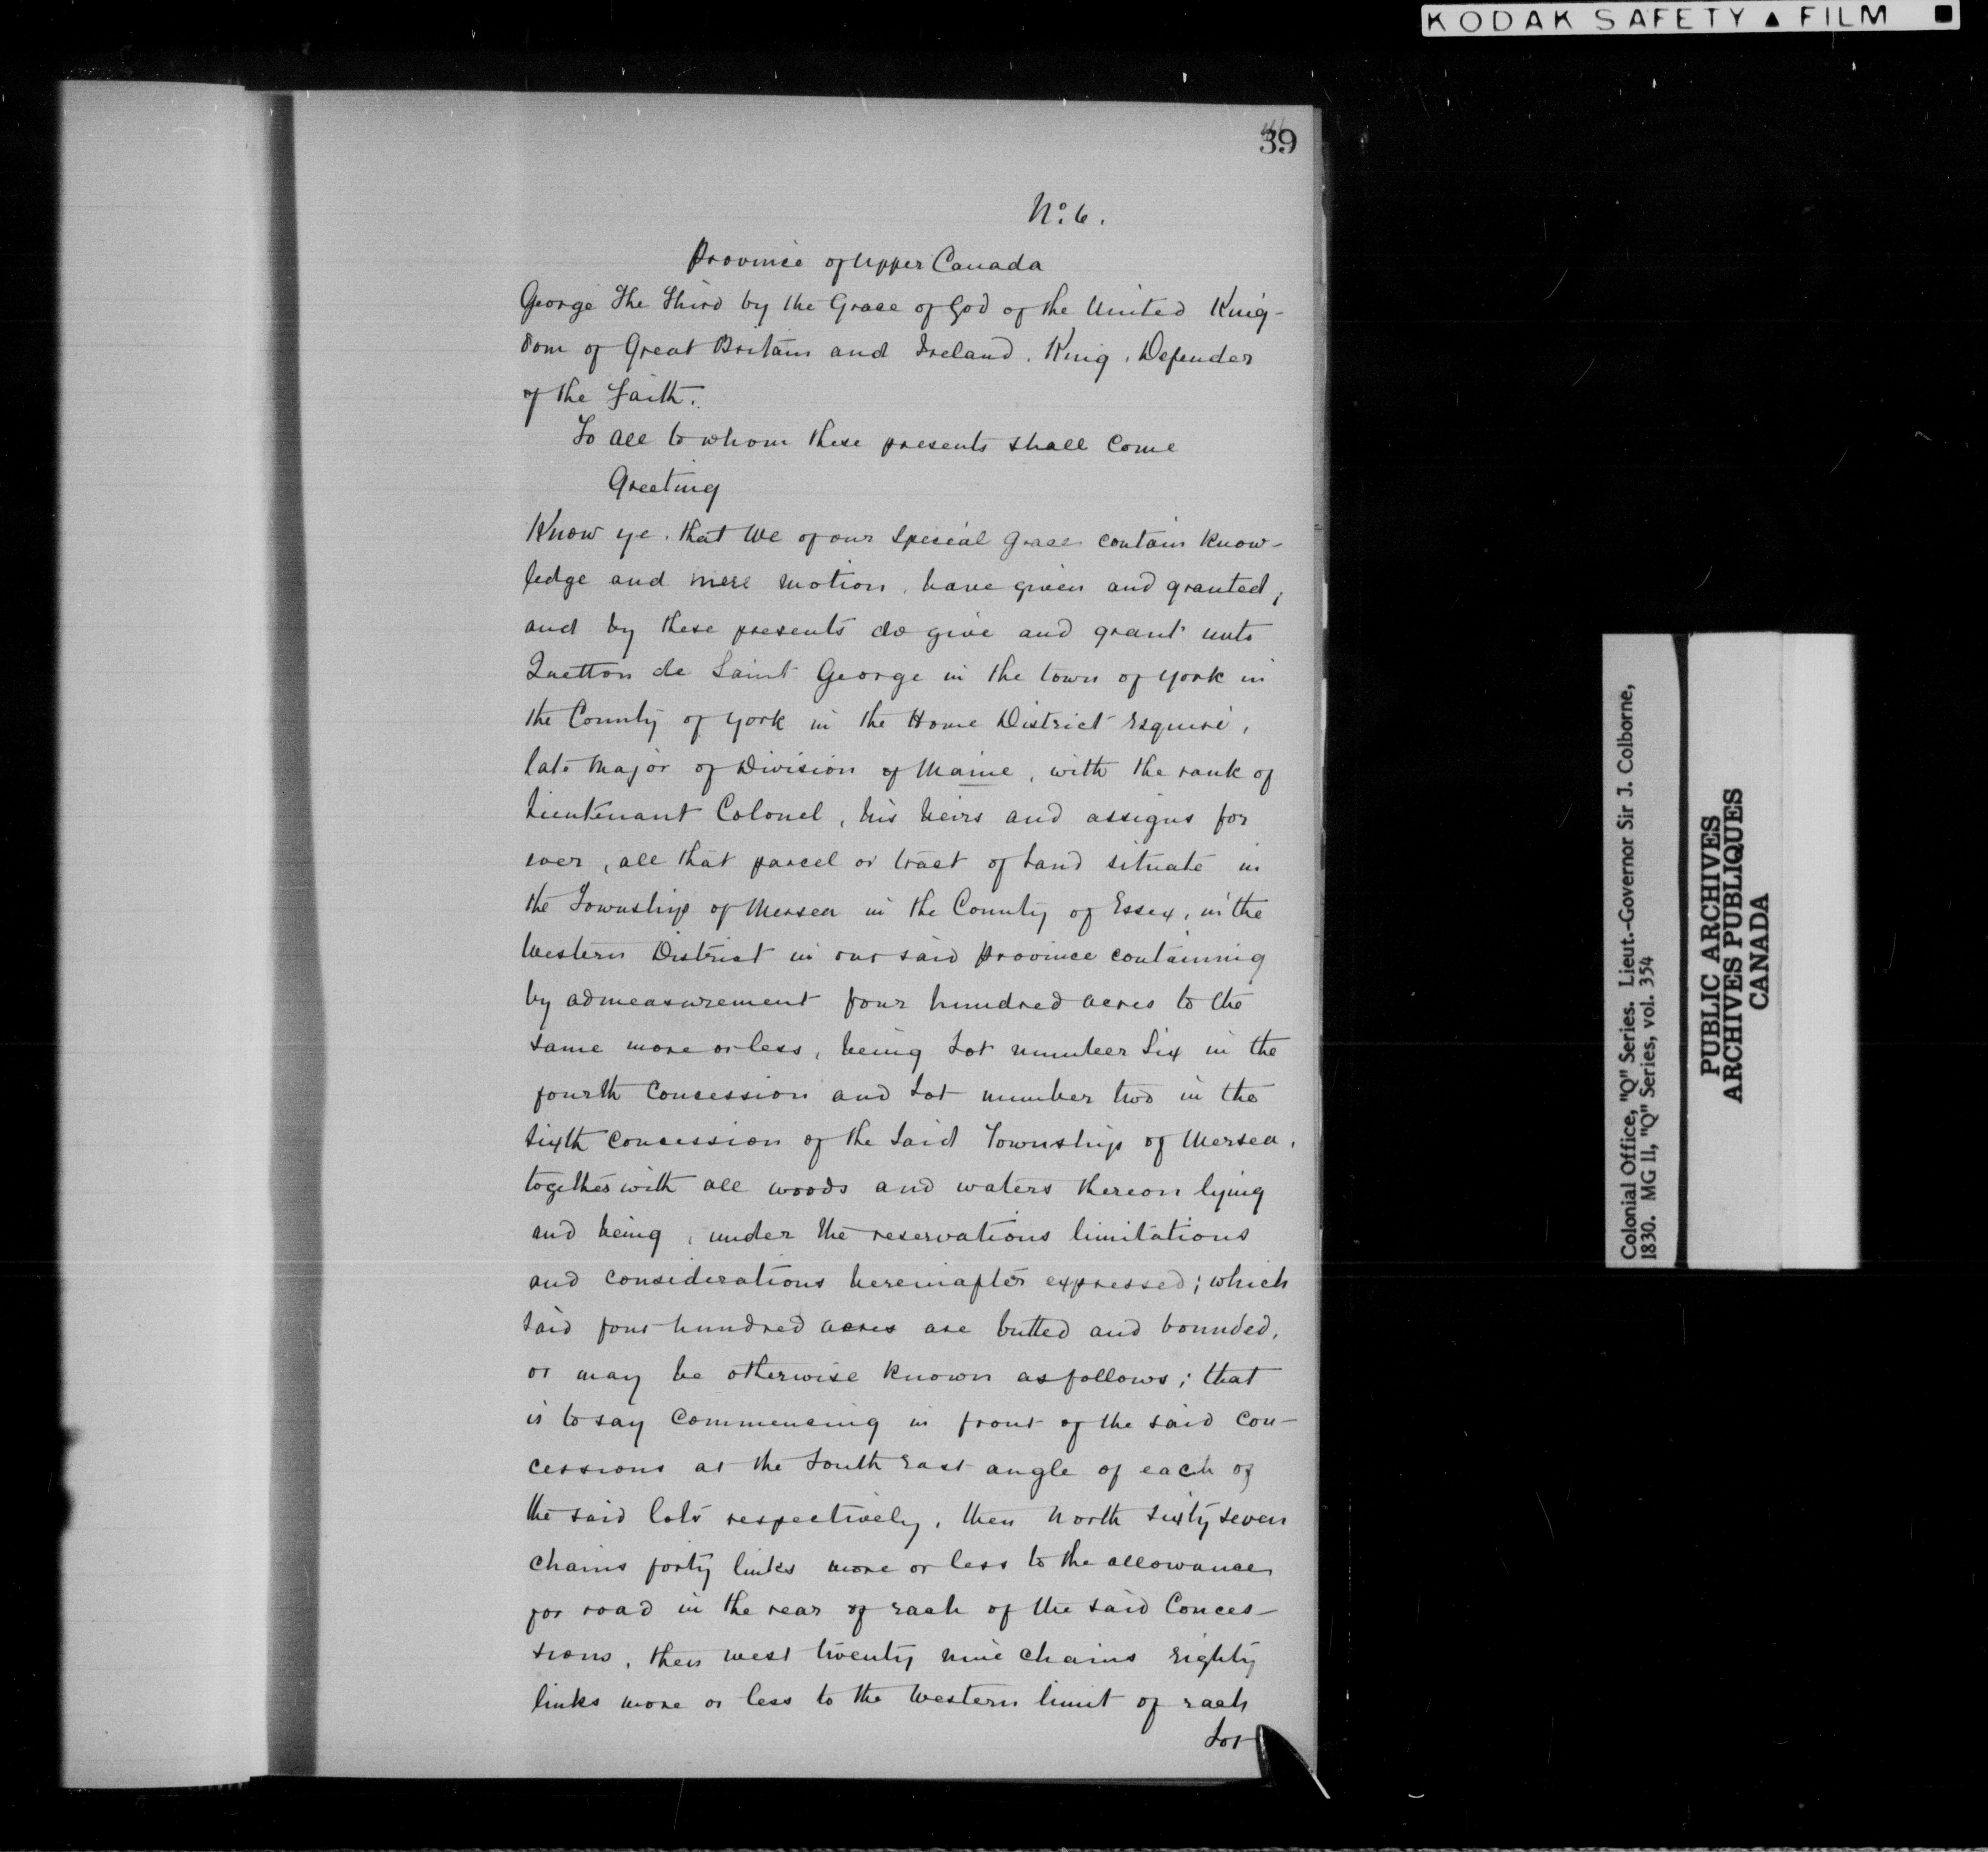 KODAK SAFETY ▲ FILM ■
39
No. 6.
Province of Upper Canada
George The Third by the Grace of God of the United King-
dom of Great Britain and Ireland. King, Defender
of the Faith.
To all to whom these presents shall come
Greeting
Know ye, that We of our special grace contain know-
ledge and mere motion, have given and granted,
and by these presents do give and grant unto
Quetton de Saint George in the town of York in
the County of York in the Home District Esquire,
late Major of Division of Maine, with the rank of
Lieutenant Colonel, his heirs and assigns for
ever, all that parcel or tract of land situate in
the Township of Mersea in the County of Essex, in the
Western District in our said Province containing
by admeasurement four hundred acres to the
same more or less, being Lot number Six in the
fourth Concession and Lot number two in the
Sixth concession of the said Township of Mersea,
together with all woods and waters thereon lying
and being, under the reservations limitations
and considerations hereinafter expressed; which
said four hundred acres are butted and bounded,
or may be otherwise known as follows; that
is to say Commencing in front of the said Con-
cessions at the South East angle of each of
the said lots respectively, then North sixty seven
chains forty links more or less to the allowance
for road in the rear of each of the said Conces-
sions, then west twenty nine chains eighty
links more or less to the Western limit of each
Lot
Colonial Office, "Q" Series. Lieut.-Governor Sir J. Colborne,
1830. MG 11, "Q" Series, vol. 354
PUBLIC ARCHIVES
ARCHIVES PUBLIQUES
CANADA